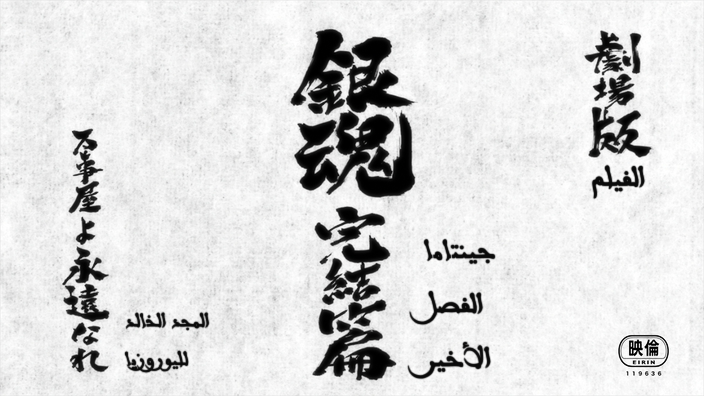 劇場版
الفيلم
銀魂
完結篇
جينتاما
الفصل
الأخير
万事屋よ永遠なれ
المجد الخالد
لليوروزيا
映倫
EIRIN
119636